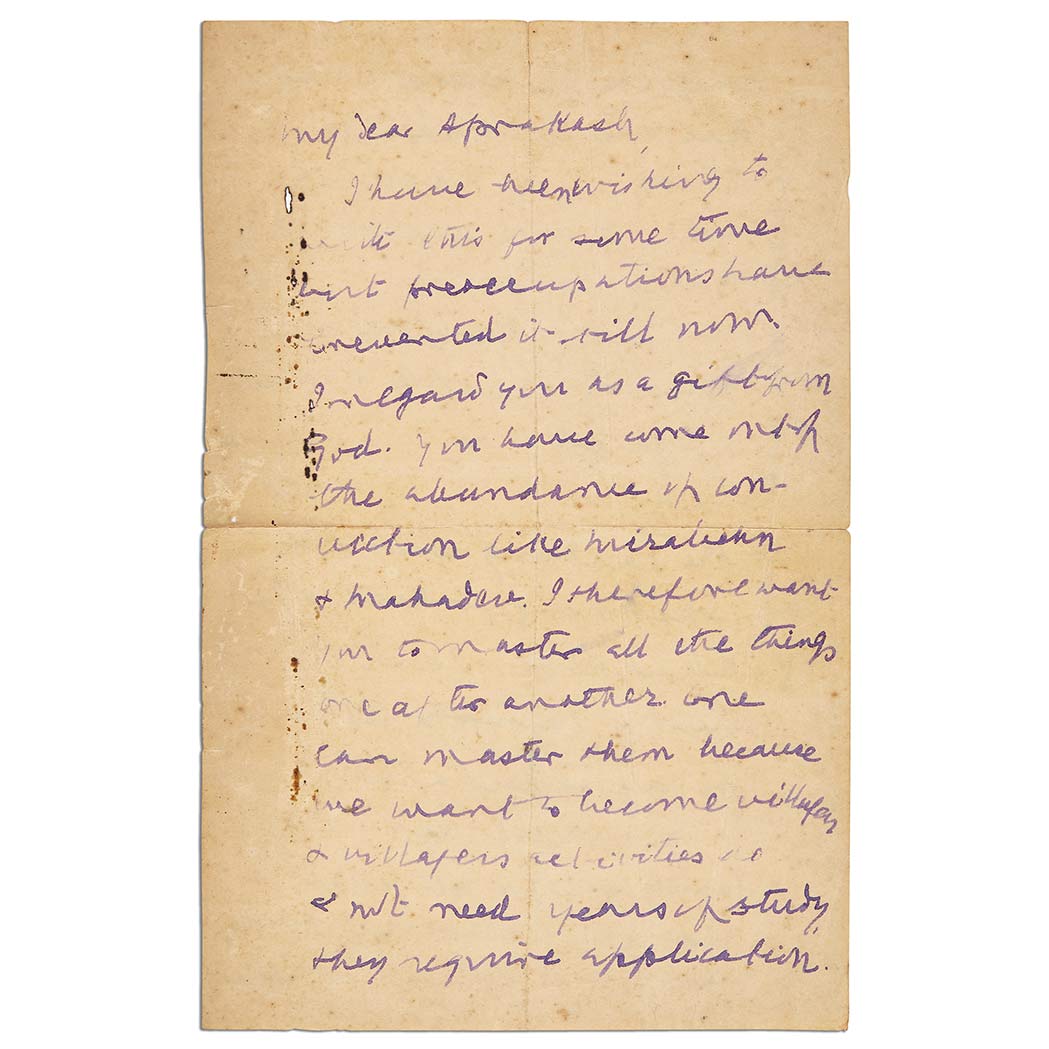 My dear Aprakash,
I have been wishing to
write this for some time
but preoccupations have
prevented it till now.
I regard you as a gift from
God. You have come out of
the abundance of con-
viction like Mirabehn
& Mahadev. I therefore want
you to master all the things
one after another. One
can master them because
we want to become villagers
& villagers activities do
& not need years of study,
they require application.